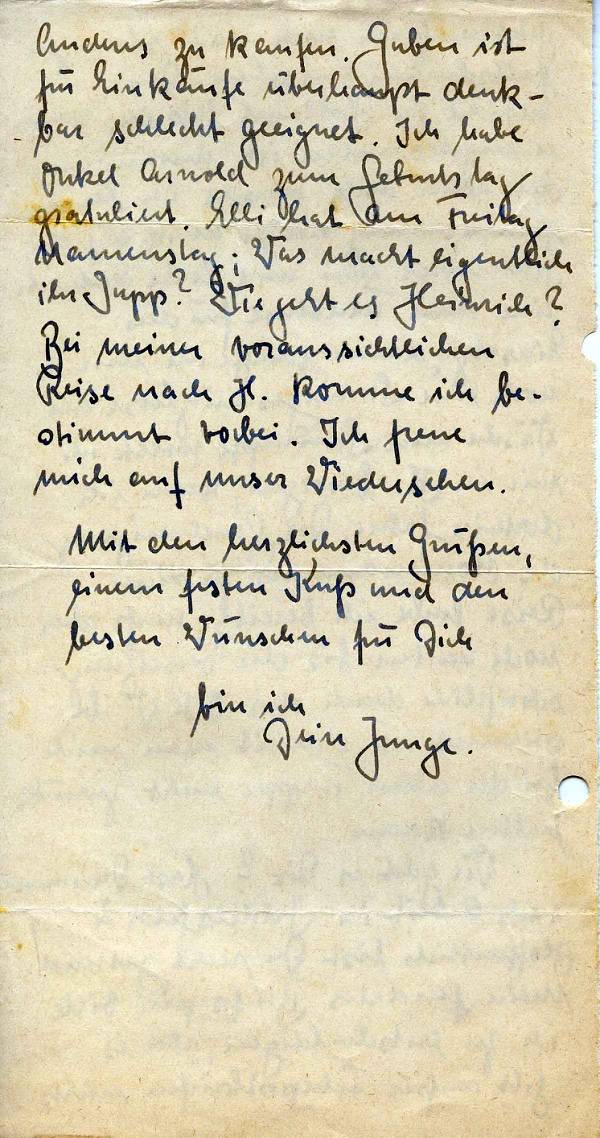 Anders zu kaufen. Guben ist
für Einkäufe überhaupt denk-
bar schlecht geeignet. Ich habe
Onkel Arnold zum Geburtstag
gratuliert. Elli hat am Freitag
Namenstag; Was macht eigentlich
ihr Jupp? Wie geht es Heinrich?
Bei meiner voraussichtlichen
Reise nach H. komme ich be-
stimmt vorbei. Ich freue
mich auf unser Wiedersehen.
Mit den herzlichsten Grüßen,
einem festen Kuß und den
besten Wünschen für Dich
bin ich
Dein Junge.